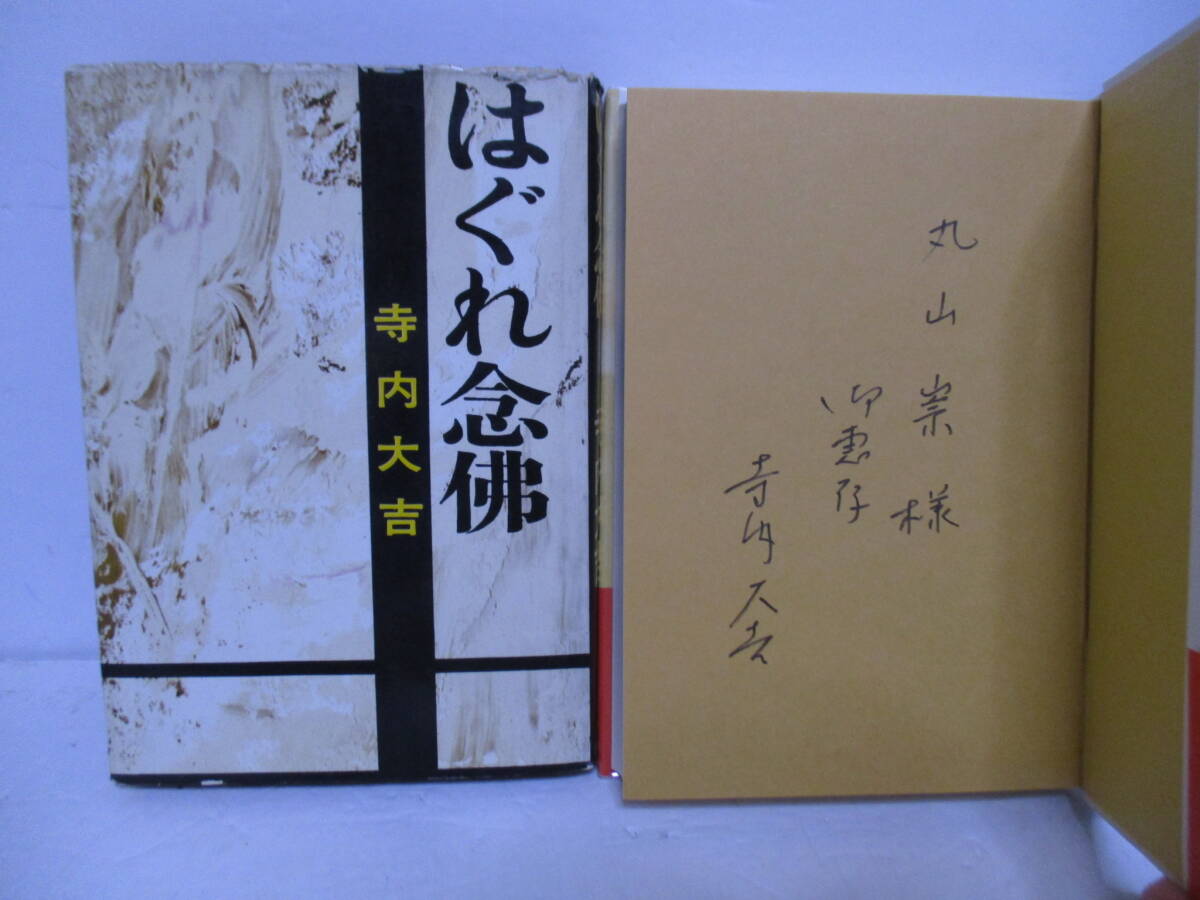 はぐれ念佛
寺内大吉
丸山崇様
御恵存
寺内大吉